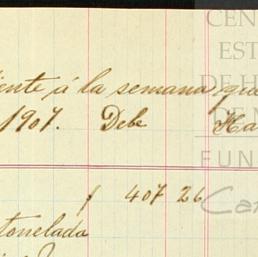 CEN
EST
DE H
DE M
FUN
Car
iente á la semana que
1907. Debe Ha
$ 407 26
tonelada